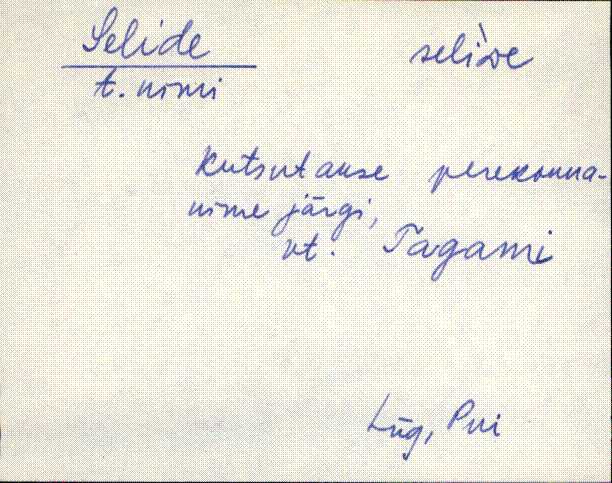 Selide seli`de
t. nimi
Kutsutakse perekonna-
nime järgi,
vt. Tagami
Lüg, Pui